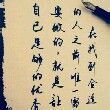 在找到合适
的人之前唯一需
要做的就是让
自己足够的优秀